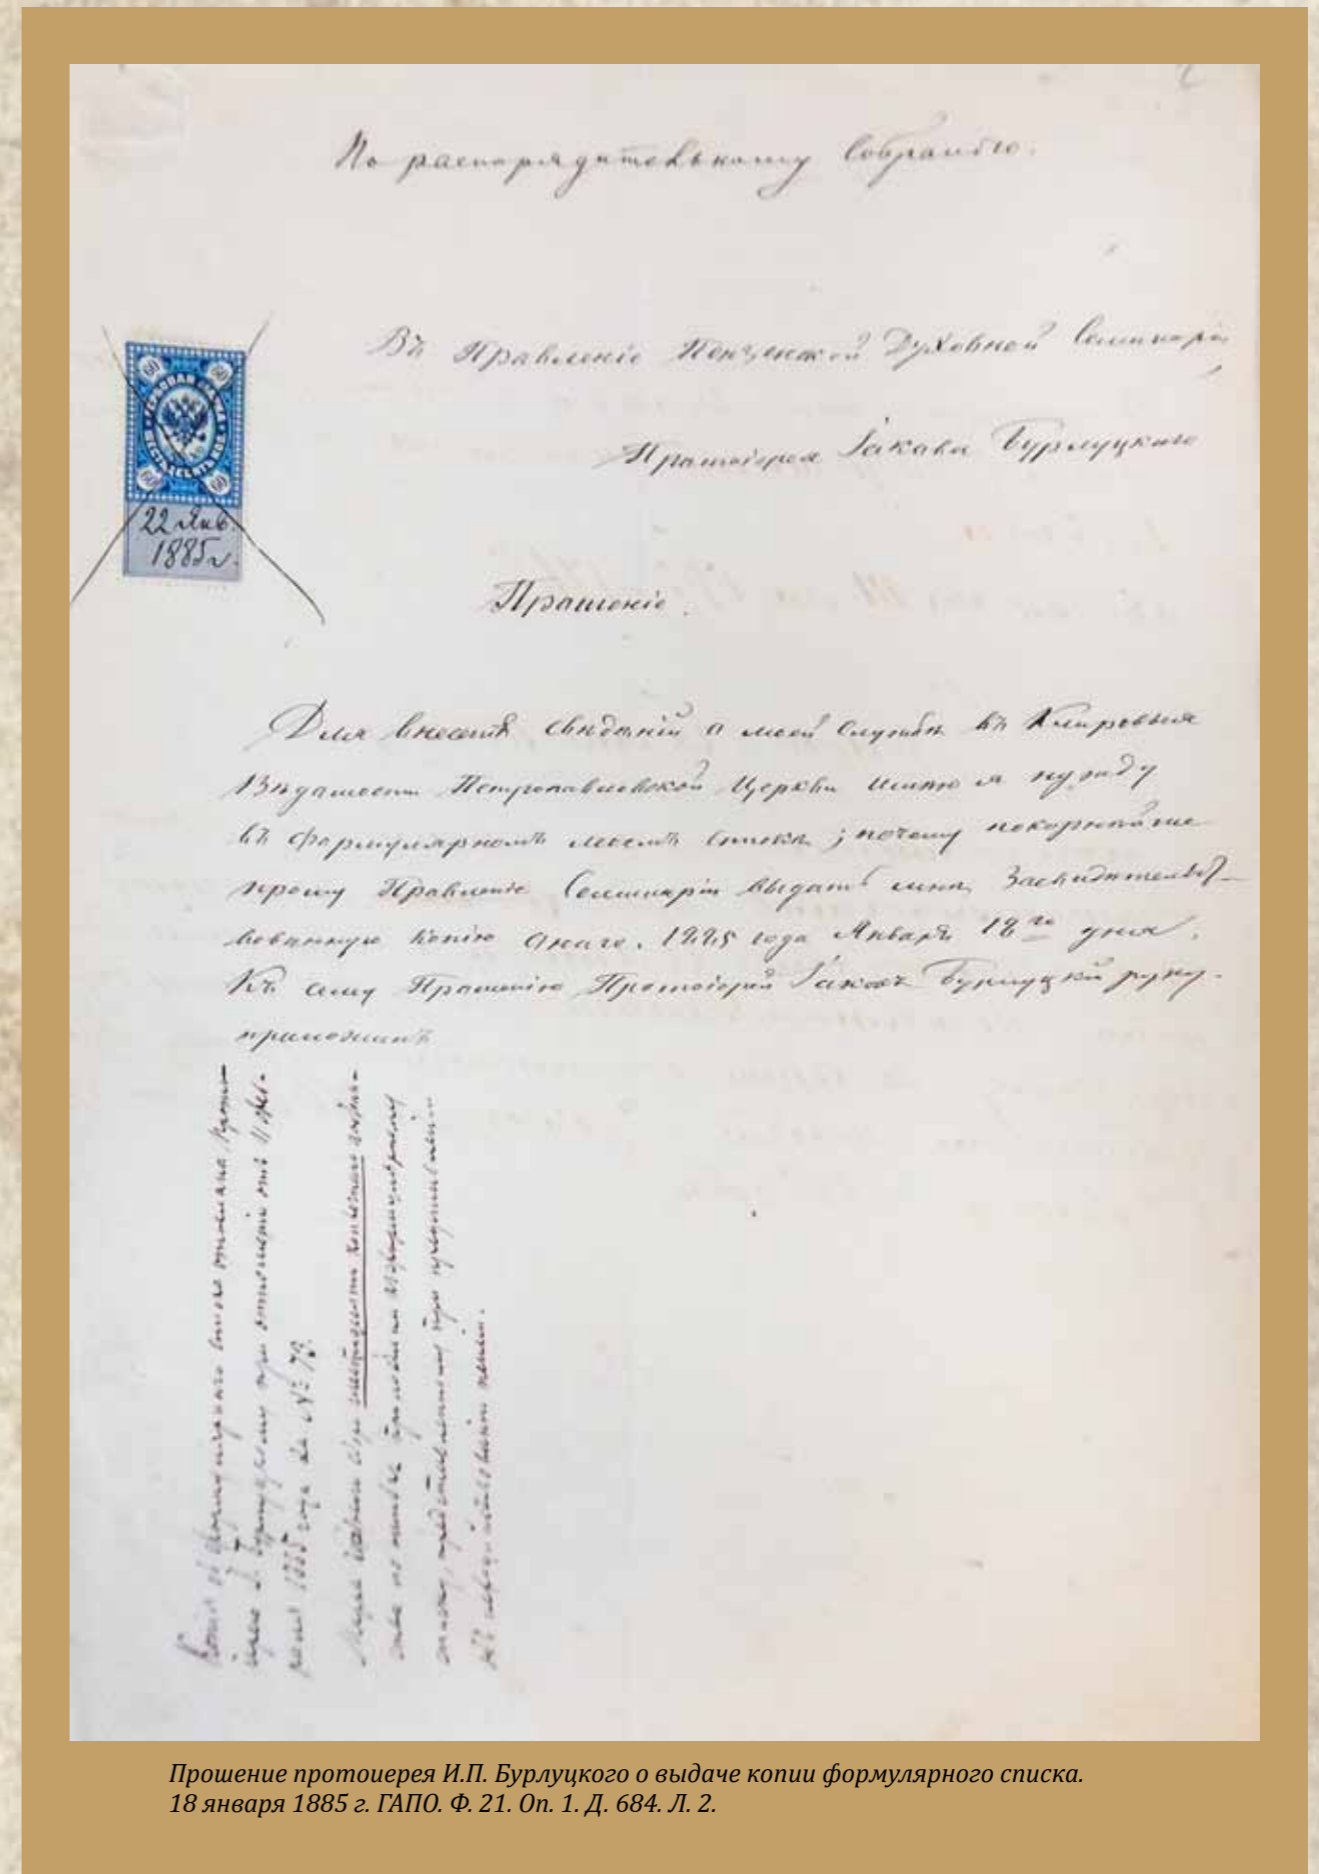 По распорядительному собранію.
Въ Правленіе Пензенской Духовной Семинаріи
Протоіерея Іакова Бурлуцкаго
60 60
ГЕРБОВАЯ МАРКА
ШЕСТЬДЕСЯТЪ КОП.
60 60
22 Янв.
1885 г.
Прошеніе.
Для внесенія свѣдѣній о моей службѣ въ Клировыя
Вѣдомости Петропавловской Церкви имѣю я нужду
въ формулярномъ моемъ спискѣ; почему покорнѣйше
прошу Правленіе Семинаріи выдать мнѣ Засвидѣтельст-
вованную копію онаго. 1885 года Января 18го дня.
Къ сему Прошенію Протоіерей Іаковъ Бурлуцкій руку
приложилъ
Копія съ формулярнаго списка отослана Прото-
іерею І. Бурлуцкому при отношеніи отъ 11 фев-
раля 1885 года за № 73.
Марка шестидесяти копѣечнаго
къ свидѣтельствованію
Прошение протоиерея И.П. Бурлуцкого о выдаче копии формулярного списка.
18 января 1885 г. ГАПО. Ф. 21. Оп. 1. Д. 684. Л. 2.